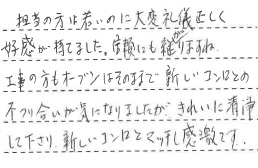 担当の方は若いのに大変礼儀正しく
好感が持てました。信頼にも繋がりますね
工事の方もオーブンはそのままで新しいコンロとの
不つり合いが気になりましたが、きれいに清掃
して下さり、新しいコンロとマッチし感激です。